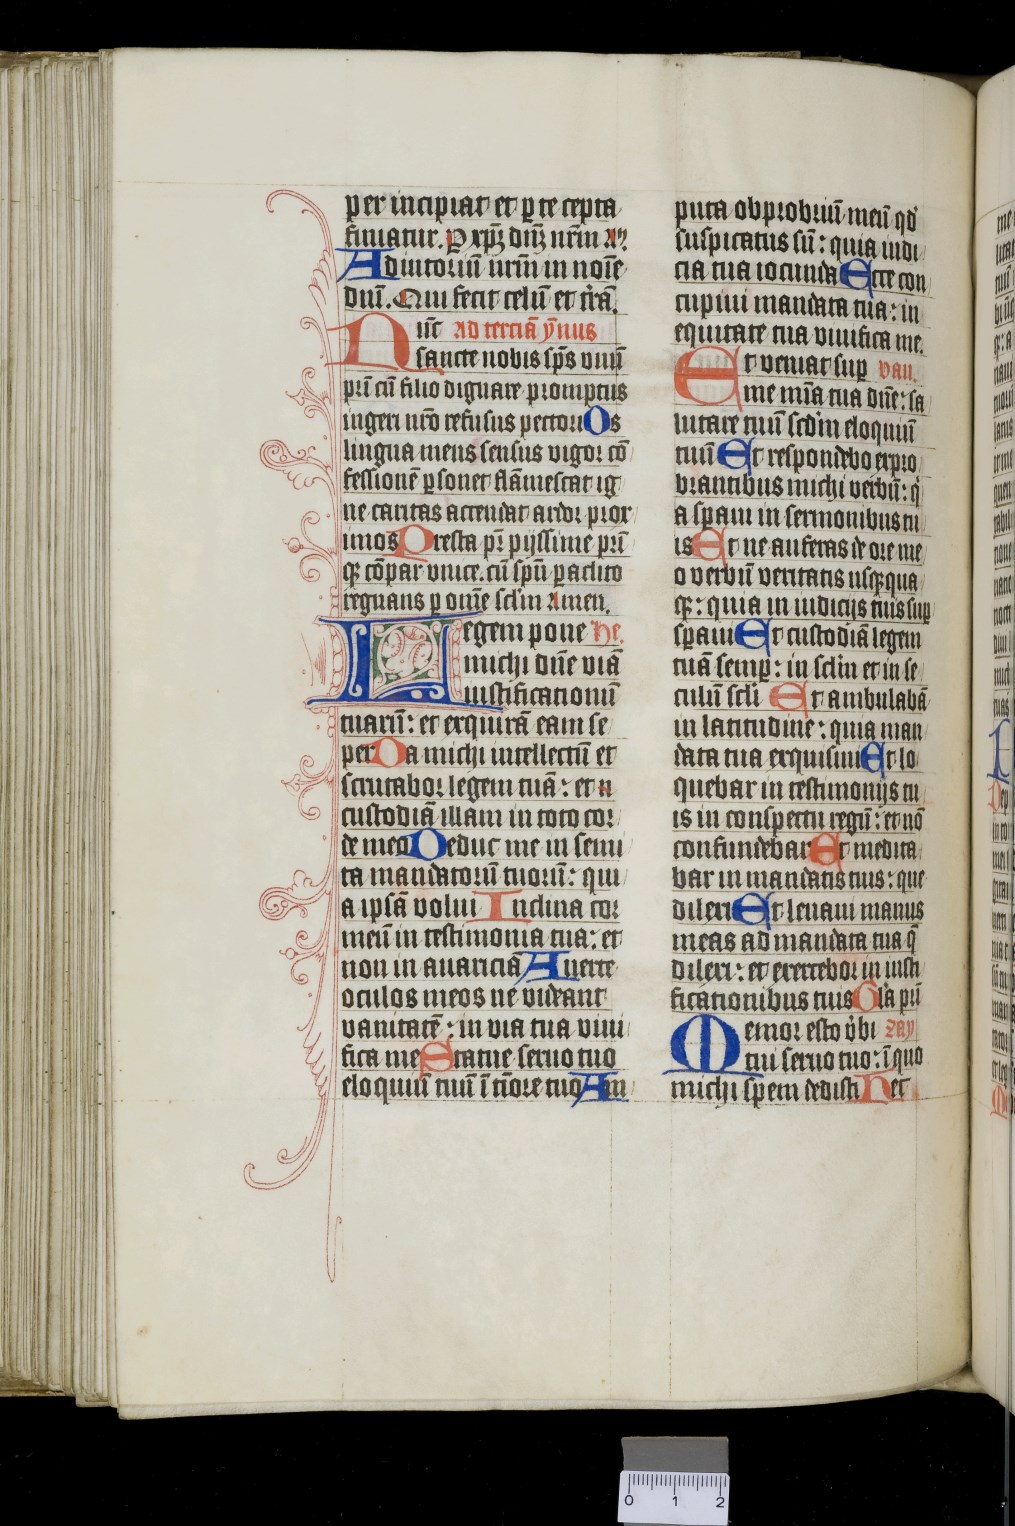 per incipiat et ꝑ te cepta
finiatur. P xp̄ꝫ dn̄ꝫ nr̄m
Adiutoriū nr̄m in noīe
dn̄i. Qui fecit celū et t̄rā.
Nūc Ad terciā ẏnus
sancte nobis sp̄s vnū
pr̄i cū filio dignare promptus
ingeri nr̄o refusus pectori Os
lingua mens sensus vigor cō
fessionē ꝑsonet flāmescat ig
ne caritas accendat ardor prox
imos Presta pr̄ pijssime pr̄ī
qꝫ cōpar vnice. cū sp̄u ꝑaclito
regnans ꝑ om̄e sclm Amen.
Legem pone he.
michi dn̄e viā
iustificationū
tuarū: et exquirā eam se
per Da michi intellectū et
scrutabor legem tuā: et
custodiā illam in toto cor
de meo Deduc me in semi
ta mandatorū tuorū: qui
a ipsā volui Inclina cor
meū in testimonia tua: et
non in auariciā Auerte
oculos meos ne videant
vanitatē: in via tua viui
fica me Statue seruo tuo
eloquiū tuū ī tīore tuo Am
puta obprobriū meū qd̕
suspicatus sū: quia iudi
cia tua iocunda Ecce con
cupiui mandata tua: in
equitate tua viuifica me.
Et veniat suꝑ vau.
me mīa tua dn̄e: sa
lutare tuū scdm eloquiū
tuū Et respondebo expro
brantibus michi verbū: q̕
a sperauī in sermonibus tu
is Et ne auferas de ore me
o verbū veritatis usqꝫqua
qꝫ: quia in iudicijs tuis suꝑ
speraui Et custodiā legem
tuā semꝑ: in sclm et in se
culū scli Et ambulabā
in latitudine: quia man
data tua exquisiui Et lo
quebar in testimonijs tu
is in conspectu regū: et nō
confundebar Et medita
bar in mandatis tuis: que
dilexi Et leuaui manus
meas ad mandata tua q̄
dilexi: et exercebor in iusti
ficationibus tuis Gl̕a pr̄i
Memor esto v̕bi zay
tui seruo tuo: ī quo
michi spem dedisti Hec